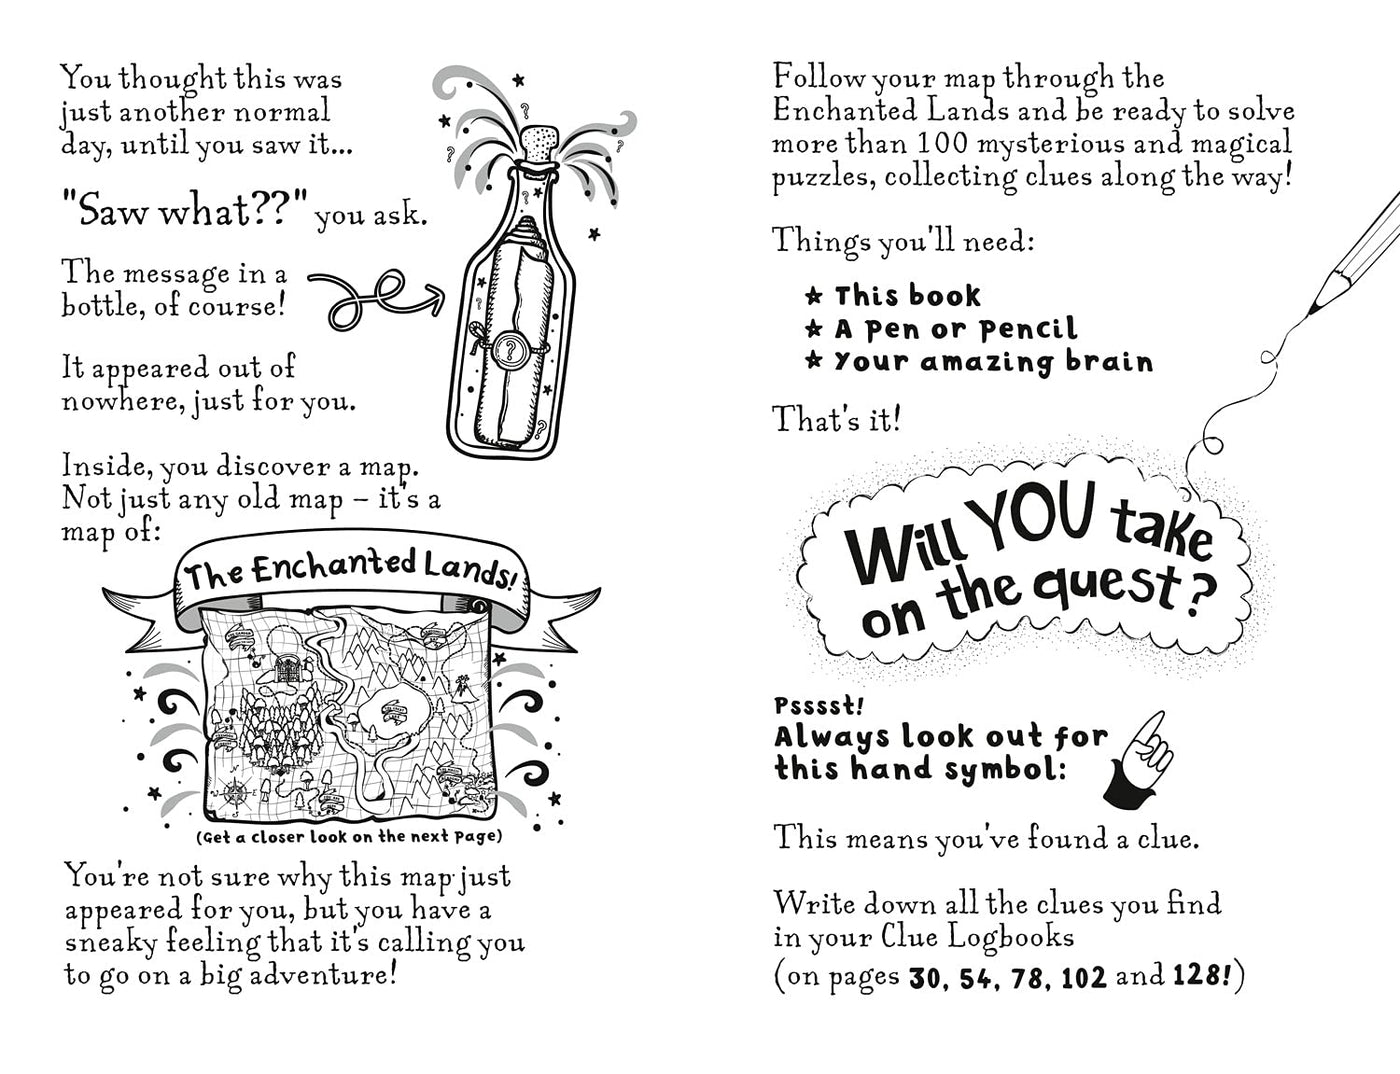 You thought this was
just another normal
day, until you saw it...
"Saw what??" you ask.
The message in a
bottle, of course!
It appeared out of
nowhere, just for you.
Inside, you discover a map.
Not just any old map – it's a
map of:
The Enchanted Lands!
(Get a closer look on the next page)
You're not sure why this map just
appeared for you, but you have a
sneaky feeling that it's calling you
to go on a big adventure!
Follow your map through the
Enchanted Lands and be ready to solve
more than 100 mysterious and magical
puzzles, collecting clues along the way!
Things you'll need:
★ This book
★ A pen or pencil
★ Your amazing brain
That's it!
Will YOU take
on the quest?
Psssst!
Always look out for
this hand symbol:
This means you've found a clue.
Write down all the clues you find
in your Clue Logbooks
(on pages 30, 54, 78, 102 and 128!)